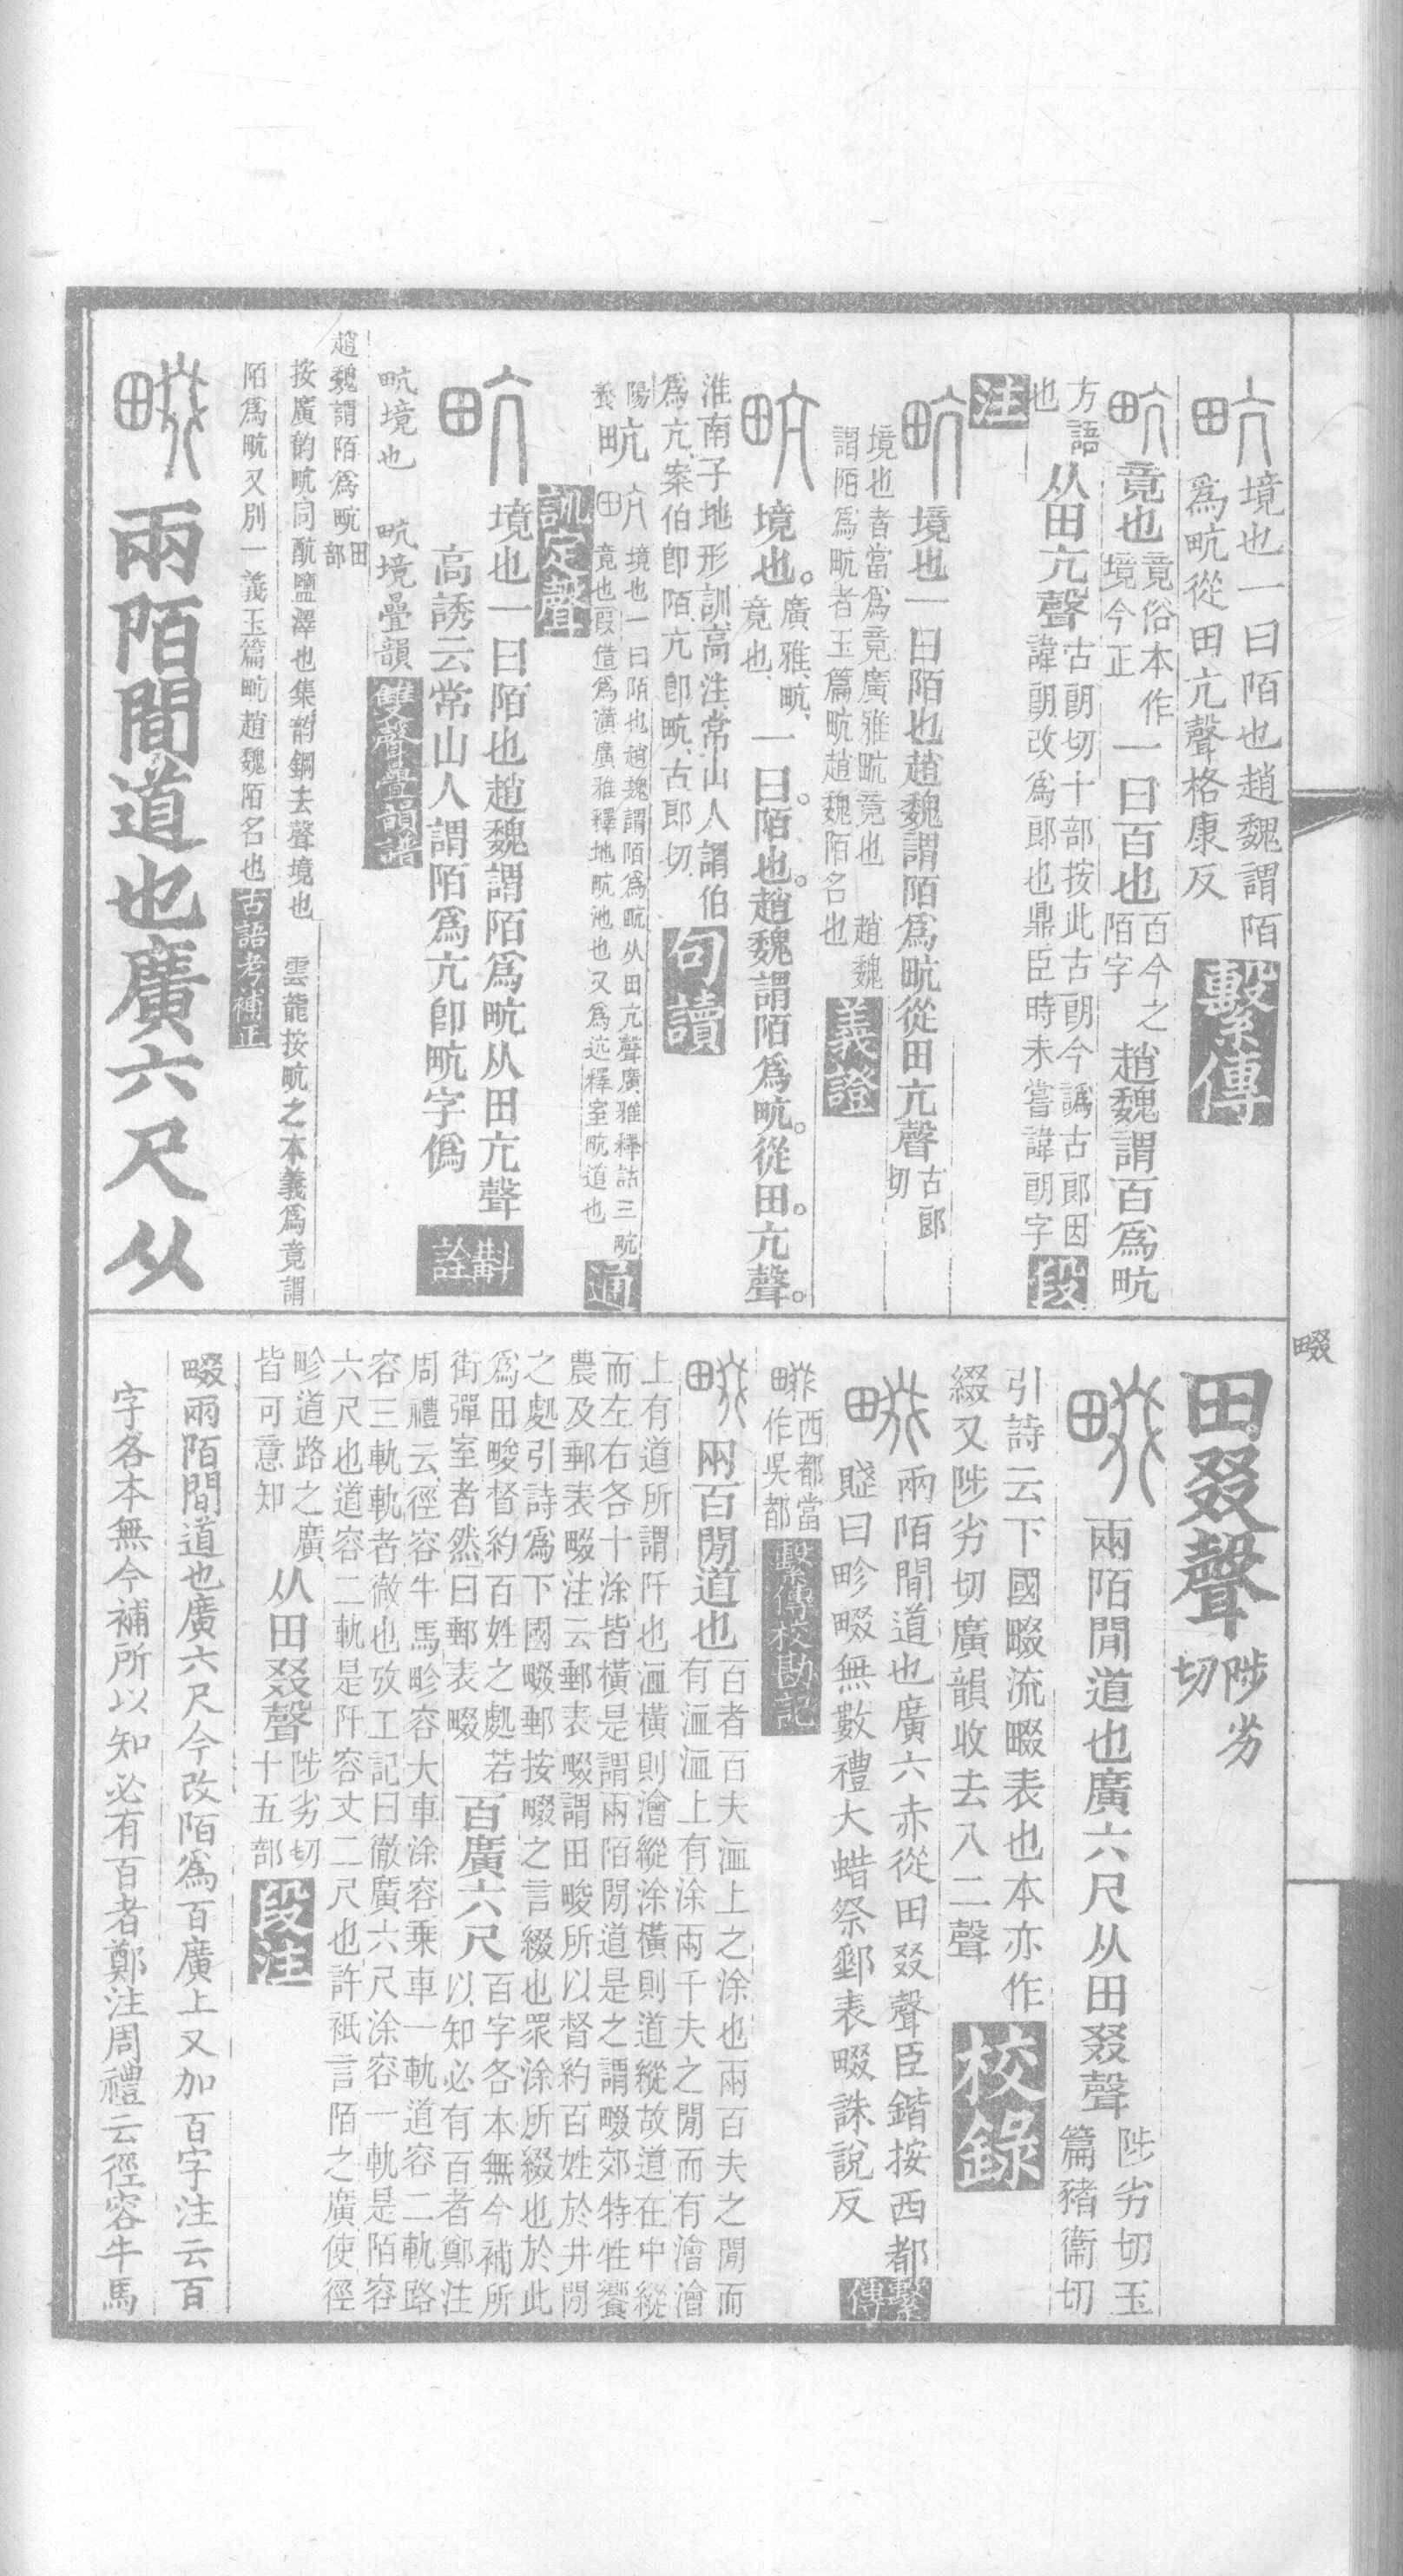 境也一曰陌也趙魏謂陌
爲畝從田亢聲格康反
繫傳
竟也
竟俗本作
境今正
一曰百也
百今之
陌字
趙魏謂百爲畝
方語
也
从田亢聲
古朗切十部按此古朗今譌古郎因
諱朗改爲郎也鼎臣時未嘗諱朗字
段
注
境也一曰陌也趙魏謂陌爲畝從田亢聲
古郎
切
境也者當爲竟廣雅畝竟也　趙魏
謂陌爲畝者玉篇畝趙魏陌名也
義證
境也。
廣雅、畝、
竟也、
一曰。陌也。趙魏謂陌爲畝。從田。亢聲。
淮南子地形訓高注、常山人謂伯
爲亢、案伯卽陌、亢卽畝、古郎切、
句讀
境也一曰陌也趙魏謂陌爲畝从田亢聲廣雅釋詁三畝
竟也叚借爲潢廣雅釋地畝池也又爲迒釋室畝道也
通
訓定聲
境也一曰陌也趙魏謂陌爲畝从田亢聲
高誘云常山人謂陌爲亢卽畝字僞
斠詮
畝境也　畝境疊韻
雙聲疊韻譜
趙魏謂陌爲畝
田
部
按廣韵畝同㽘鹽澤也集韵鋼去聲境也　雲龍按畝之本義爲竟謂
陌爲畝又別一義玉篇畝趙魏陌名也
古語考補正
兩陌間道也廣六尺从
畷
田叕聲
陟劣
切
兩陌閒道也廣六尺从田叕聲
陟劣切玉
篇豬衞切
引詩云下國畷流畷表也本亦作
綴又陟劣切廣韻收去入二聲
校錄
兩陌閒道也廣六赤從田叕聲臣鍇按西都
賦曰畛畷無數禮大蜡祭郵表畷誅說反
繫傳
西都當
作吳都
繫傳校勘記
兩百閒道也
百者百夫洫上之涂也兩百夫之閒而
有洫洫上有涂兩千夫之閒而有澮澮
上有道所謂阡也洫橫則澮縱涂橫則道縱故道在中縱
而左右各十涂皆橫是謂兩陌閒道是之謂畷郊特牲饗
農及郵表畷注云郵表畷謂田畯所以督約百姓於井閒
之處引詩爲下國畷郵按畷之言綴也眾涂所綴也於此
爲田畯督約百姓之處若
街彈室者然曰郵表畷
百廣六尺
百字各本無今補所
以知必有百者鄭注
周禮云徑容牛馬畛容大車涂容乘車一軌道容二軌路
容三軌軌者徹也攷工記曰徹廣六尺涂容一軌是陌容
六尺也道容二軌是阡容丈二尺也許祇言陌之廣使徑
畛道路之廣
皆可意知
从田叕聲
陟劣切
十五部
段注
畷兩陌閒道也廣六尺今改陌爲百廣上又加百字注云百
字各本無今補所以知必有百者鄭注周禮云徑容牛馬